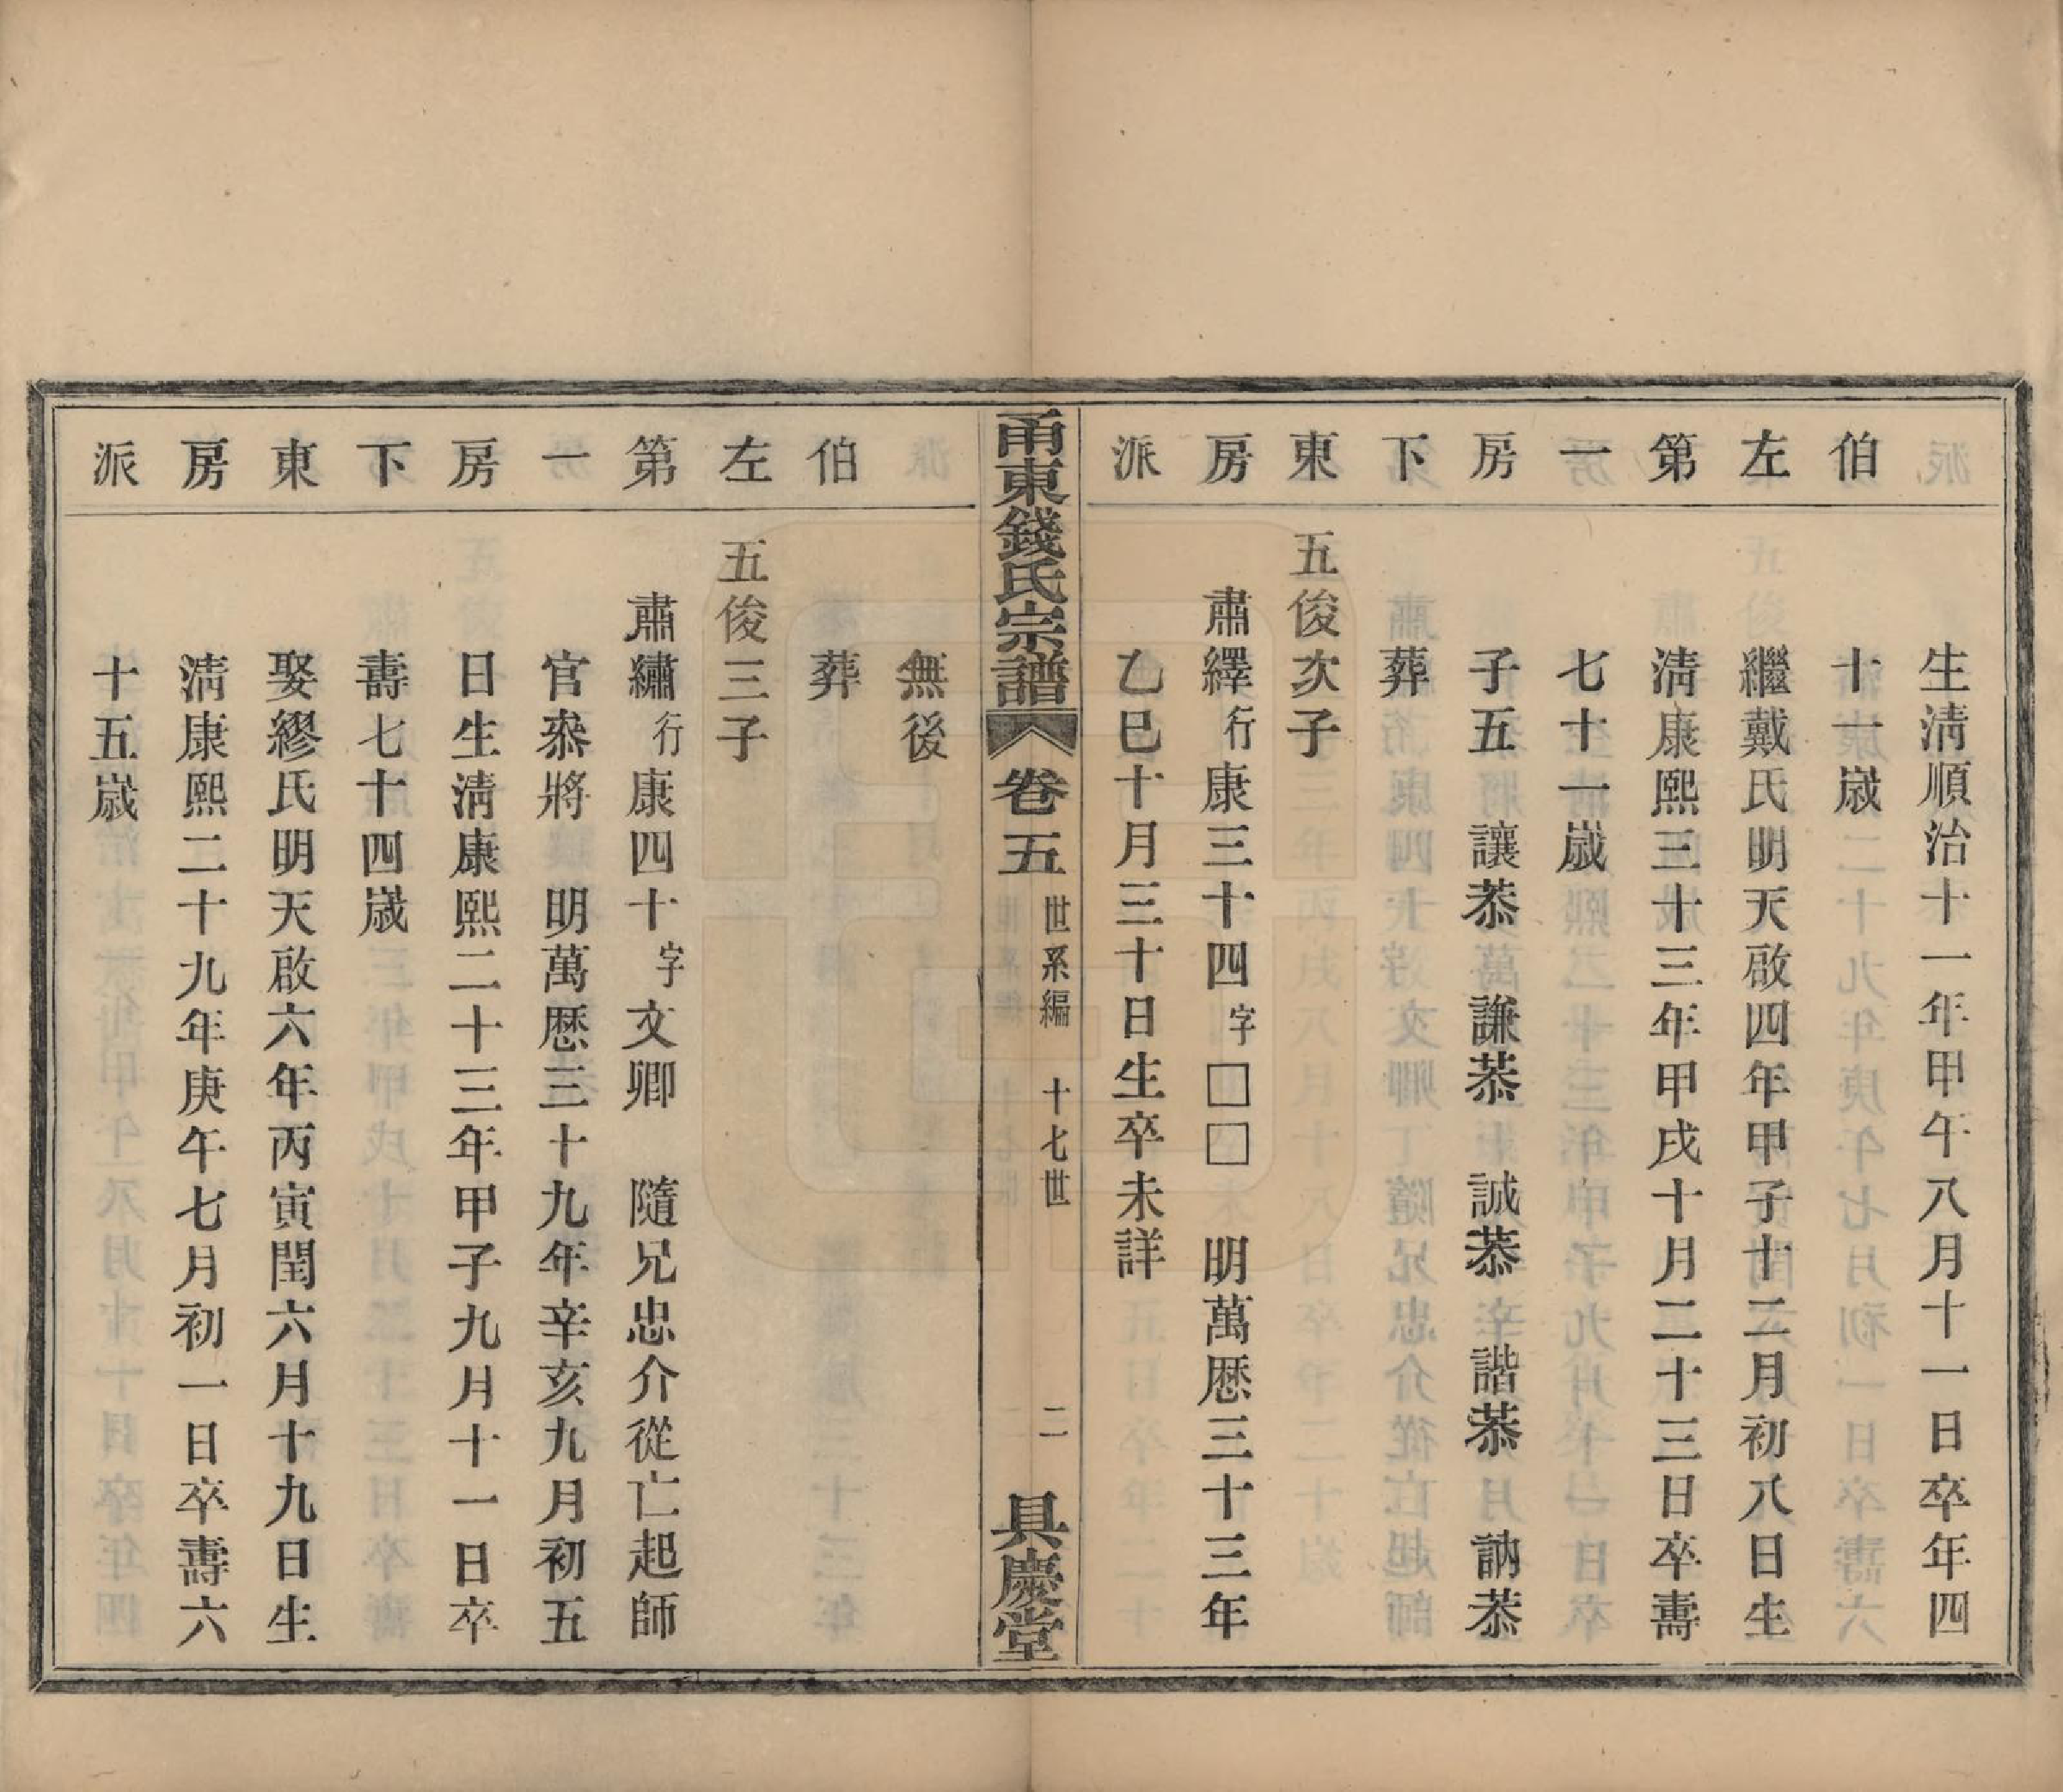 伯左第一房下東房派
生淸順治十一年甲午八月十一日卒年四
十一歲
繼戴氏明天啟四年甲子十二月初八日生
淸康熙三十三年甲戌十月二十三日卒壽
七十一歲
子五 讓恭 謙恭 誠恭 諧恭 訥恭
葬
五俊次子
肅繹行康三十四字□□ 明萬歷三十三年
乙巳十月三十日生卒未詳
甬東錢氏宗譜 卷五 世系編 十七世 二 具慶堂
伯左第一房下東房派
無後
葬
五俊三子
肅繡行康四十字文卿 隨兄忠介從亡起師
官叅將 明萬歷三十九年辛亥九月初五
日生淸康熙二十三年甲子九月十一日卒
壽七十四歲
娶繆氏明天啟六年丙寅閏六月十九日生
淸康熙二十九年庚午七月初一日卒壽六
十五歲